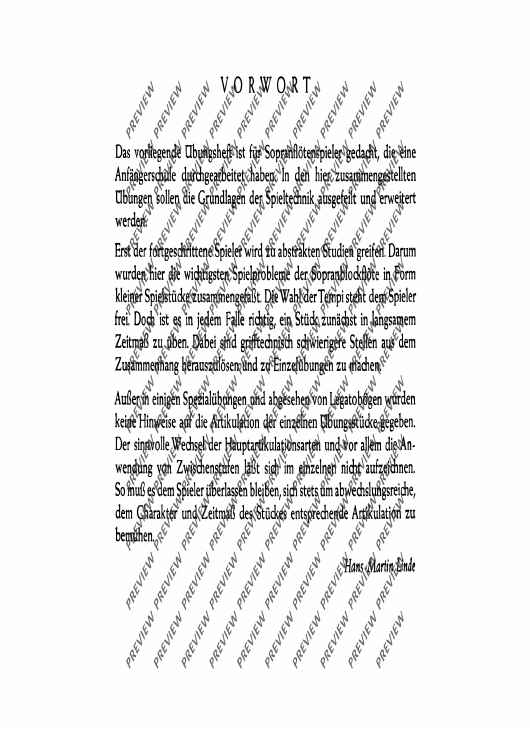 VORWORT
Das vorliegende Übungsheft ist für Sopranflötenspieler gedacht, die eine
Anfängerschule durchgearbeitet haben. In den hier zusammengestellten
Übungen sollen die Grundlagen der Spieltechnik ausgefeilt und erweitert
werden.
Erst der fortgeschrittene Spieler wird zu abstrakten Studien greifen. Darum
wurden hier die wichtigsten Spielprobleme der Sopranblockflöte in Form
kleiner Spielstücke zusammengefaßt. Die Wahl der Tempi steht dem Spieler
frei. Doch ist es in jedem Falle richtig, ein Stück zunächst in langsamem
Zeitmaß zu üben. Dabei sind grifftechnisch schwierigere Stellen aus dem
Zusammenhang herauszulösen und zu Einzelübungen zu machen.
Außer in einigen Spezialübungen und abgesehen von Legatobögen wurden
keine Hinweise auf die Artikulation der einzelnen Übungsstücke gegeben.
Der sinnvolle Wechsel der Hauptartikulationsarten und vor allem die An-
wendung von Zwischenstufen läßt sich im einzelnen nicht aufzeichnen.
So muß es dem Spieler überlassen bleiben, sich stets um abwechslungsreiche,
dem Charakter und Zeitmaß des Stückes entsprechende Artikulation zu
bemühen.
Hans-Martin Linde
PREVIEW